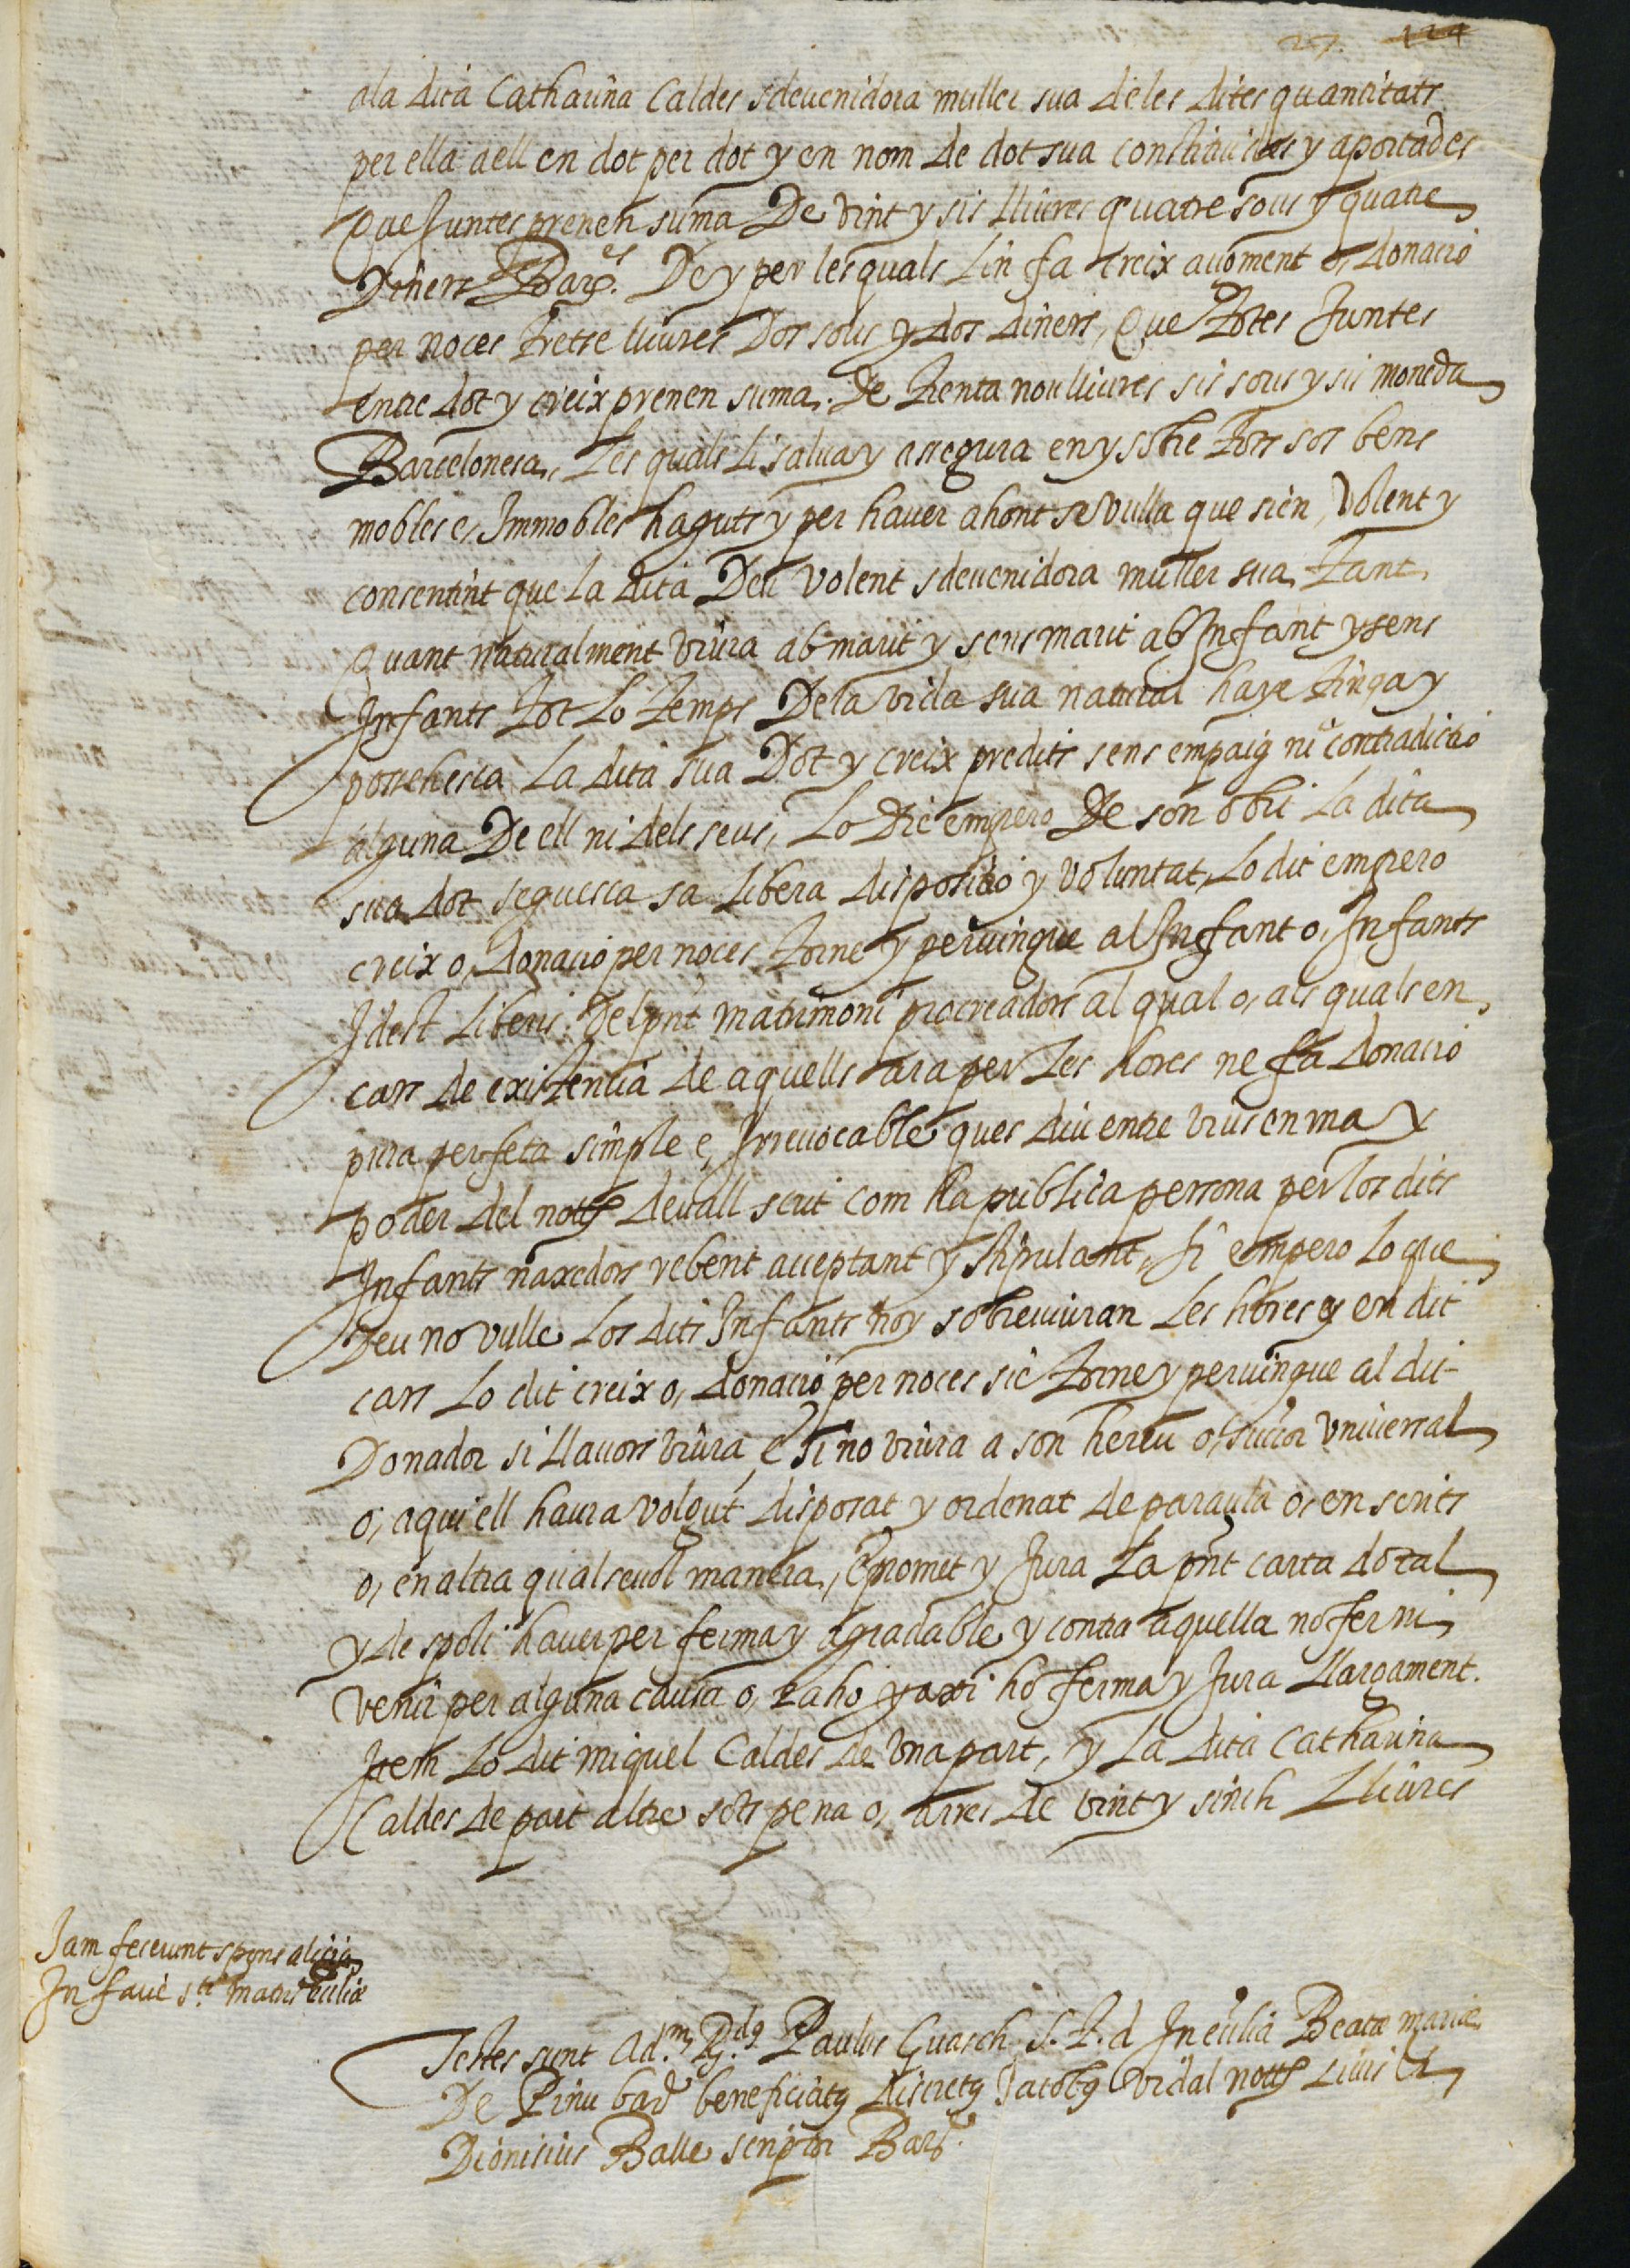 27. 124
ala dita Catharina Caldes sdevenidora muller sua de les dites quantitats
per ella a ell en dot per dot y en nom de dot sua constituides y aportades
Que Juntes prenen suma De vint y sis lliures quatre sous y quatre
Diners Barses. De y per les quals li n fa creix aument o, donacio
per noces tretse lliures Dos sous y dos diners, Que totes Juntes
entre dot y creix prenen suma. De trenta nou lliures sis sous y sis moneda
Barcelonesa, Les quals li salva y assegura en y sobre tots sos bens
mobles e, Immobles haguts y per haver ahont se vulla que sien, Volent y
consentint que la dita Deu volent sdevenidora muller sua, tant
Quant naturalment viura ab marit y sens marit ab Infant y sens
Infants tot lo temps De la vida sua natural haje tinga y
possehesca la dita sua Dot y creix predits sens empaig ni contradictio
alguna De ell ni dels seus, Lo Dic empero De son obit la dita
sua dot seguesca sa libera disposicio y voluntat, Lo dit empero
creix o, donacio per noces torne y pervingue al Infant o, Infants
Idest liberis. Del pnt matrimoni procreadors al qual o, als quals en
cars de existentia de aquells ara per les hores ne fa donacio
pura perfeta simple e, Irrevocable ques diu entre vius en ma y
poder del nott devall scrit com ha publica persona per los dits
Infants naxedors rebent acceptant y stipulant, si empero lo que
Deu no vulle los dits Infants noy sobreviuran les hores y en dit
cars Lo dit creix o, donacio per noces sie torne y pervingue al dit
Donador si llavors viura, e si no viura a son hereu o, succor universal
o, aqui ell haura volgut disposat y ordenat de paraula o, en scrits
o, en altra qualsevol manera, E promet y Jura La pnt carta dotal
y de spoli haver per ferma y agradable y contra aquella no fer ni
venir per alguna causa o, raho y axi ho ferma y Jura Llargament.
Item Lo dit miquel Caldes de una part, y La dita Catharina
Caldes de part altre sots pena o, arres de vint y sinch Lliures
Jam fecerunt sponsalicia
In facie ste matris ecclie
Testes sunt Ad.m R.dq Paulus Guasch S. T. d In ecclia Beatæ mariæ
De Pinu bare beneficiatq discretq Jacobq Vidal notts civis Et
Dionisius Balle scriptor Bare.